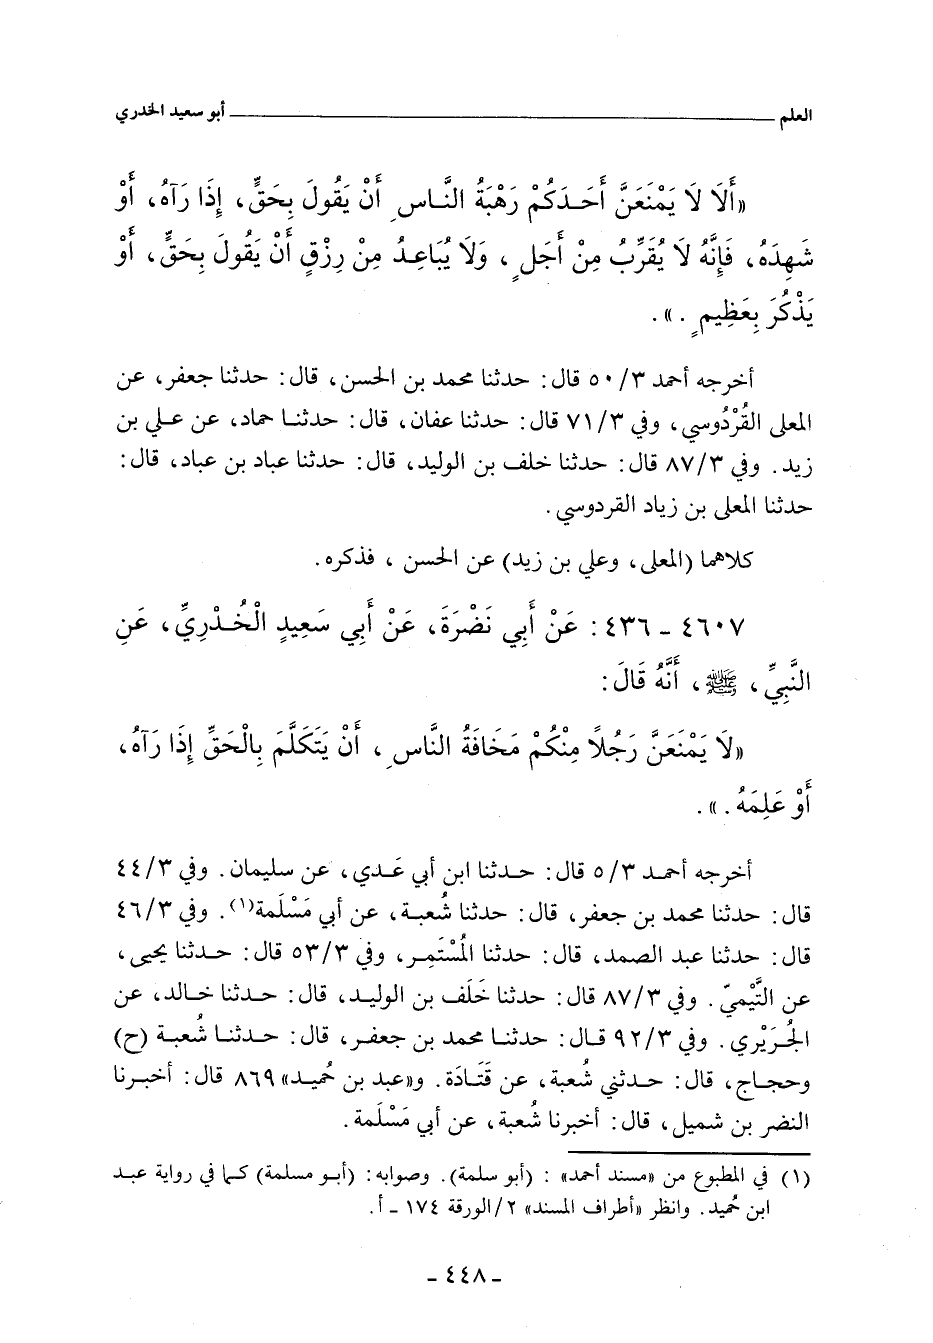 العلم ــــــــــــــــــــ أبو سعيد الخدري
«أَلَا لَا يَمْنَعَنَّ أَحَدَكُمْ رَهْبَةُ النَّاسِ أَنْ يَقُولَ بِحَقٍّ، إِذَا رَآهُ، أَوْ
شَهِدَهُ، فَإِنَّهُ لَا يُقَرِّبُ مِنْ أَجَلٍ، وَلَا يُبَاعِدُ مِنْ رِزْقٍ أَنْ يَقُولَ بِحَقٍّ، أَوْ
يَذْكُرَ بِعَظِيمٍ.».
أخرجه أحمد ٥٠/٣ قال: حدثنا محمد بن الحسن، قال: حدثنا جعفر، عن
المعلى القُرْدُوسي، وفي ٧١/٣ قال: حدثنا عفان، قال: حدثنا حماد، عن علي بن
زيد. وفي ٨٧/٣ قال: حدثنا خلف بن الوليد، قال: حدثنا عباد بن عباد، قال:
حدثنا المعلى بن زياد القردوسي.
كلاهما (المعلى، وعلي بن زيد) عن الحسن، فذكره.
٤٦٠٧ - ٤٣٦: عَنْ أَبِي نَضْرَةَ، عَنْ أَبِي سَعِيدٍ الْخُدْرِيِّ، عَنِ
النَّبِيِّ، ﷺ، أَنَّهُ قَالَ:
«لَا يَمْنَعَنَّ رَجُلاً مِنْكُمْ مَخَافَةُ النَّاسِ، أَنْ يَتَكَلَّمَ بِالْحَقِّ إِذَا رَآهُ،
أَوْ عَلِمَهُ.».
أخرجه أحمد ٥/٣ قال: حدثنا ابن أبي عَدي، عن سليمان. وفي ٤٤/٣
قال: حدثنا محمد بن جعفر، قال: حدثنا شُعبة، عن أبي مَسْلَمة(١). وفي ٤٦/٣
قال: حدثنا عبد الصمد، قال: حدثنا المُسْتَمِر، وفي ٥٣/٣ قال: حدثنا يحيى،
عن التَّيْمِيّ. وفي ٨٧/٣ قال: حدثنا خَلَف بن الوليد، قال: حدثنا خالد، عن
الجُرَيْري. وفي ٩٢/٣ قال: حدثنا محمد بن جعفر، قال: حدثنا شُعبة (ح)
وحجاج، قال: حدثني شُعبة، عن قَتَادَة. و«عبد بن حُميد» ٨٦٩ قال: أخبرنا
النضر بن شميل، قال: أخبرنا شُعبة، عن أبي مَسْلَمة.
(١) في المطبوع من «مسند أحمد»: (أبو سلمة). وصوابه: (أبو مسلمة) كما في رواية عبد
ابن حُميد. وانظر «أطراف المسند» ٢/الورقة ١٧٤ - أ.
- ٤٤٨ -